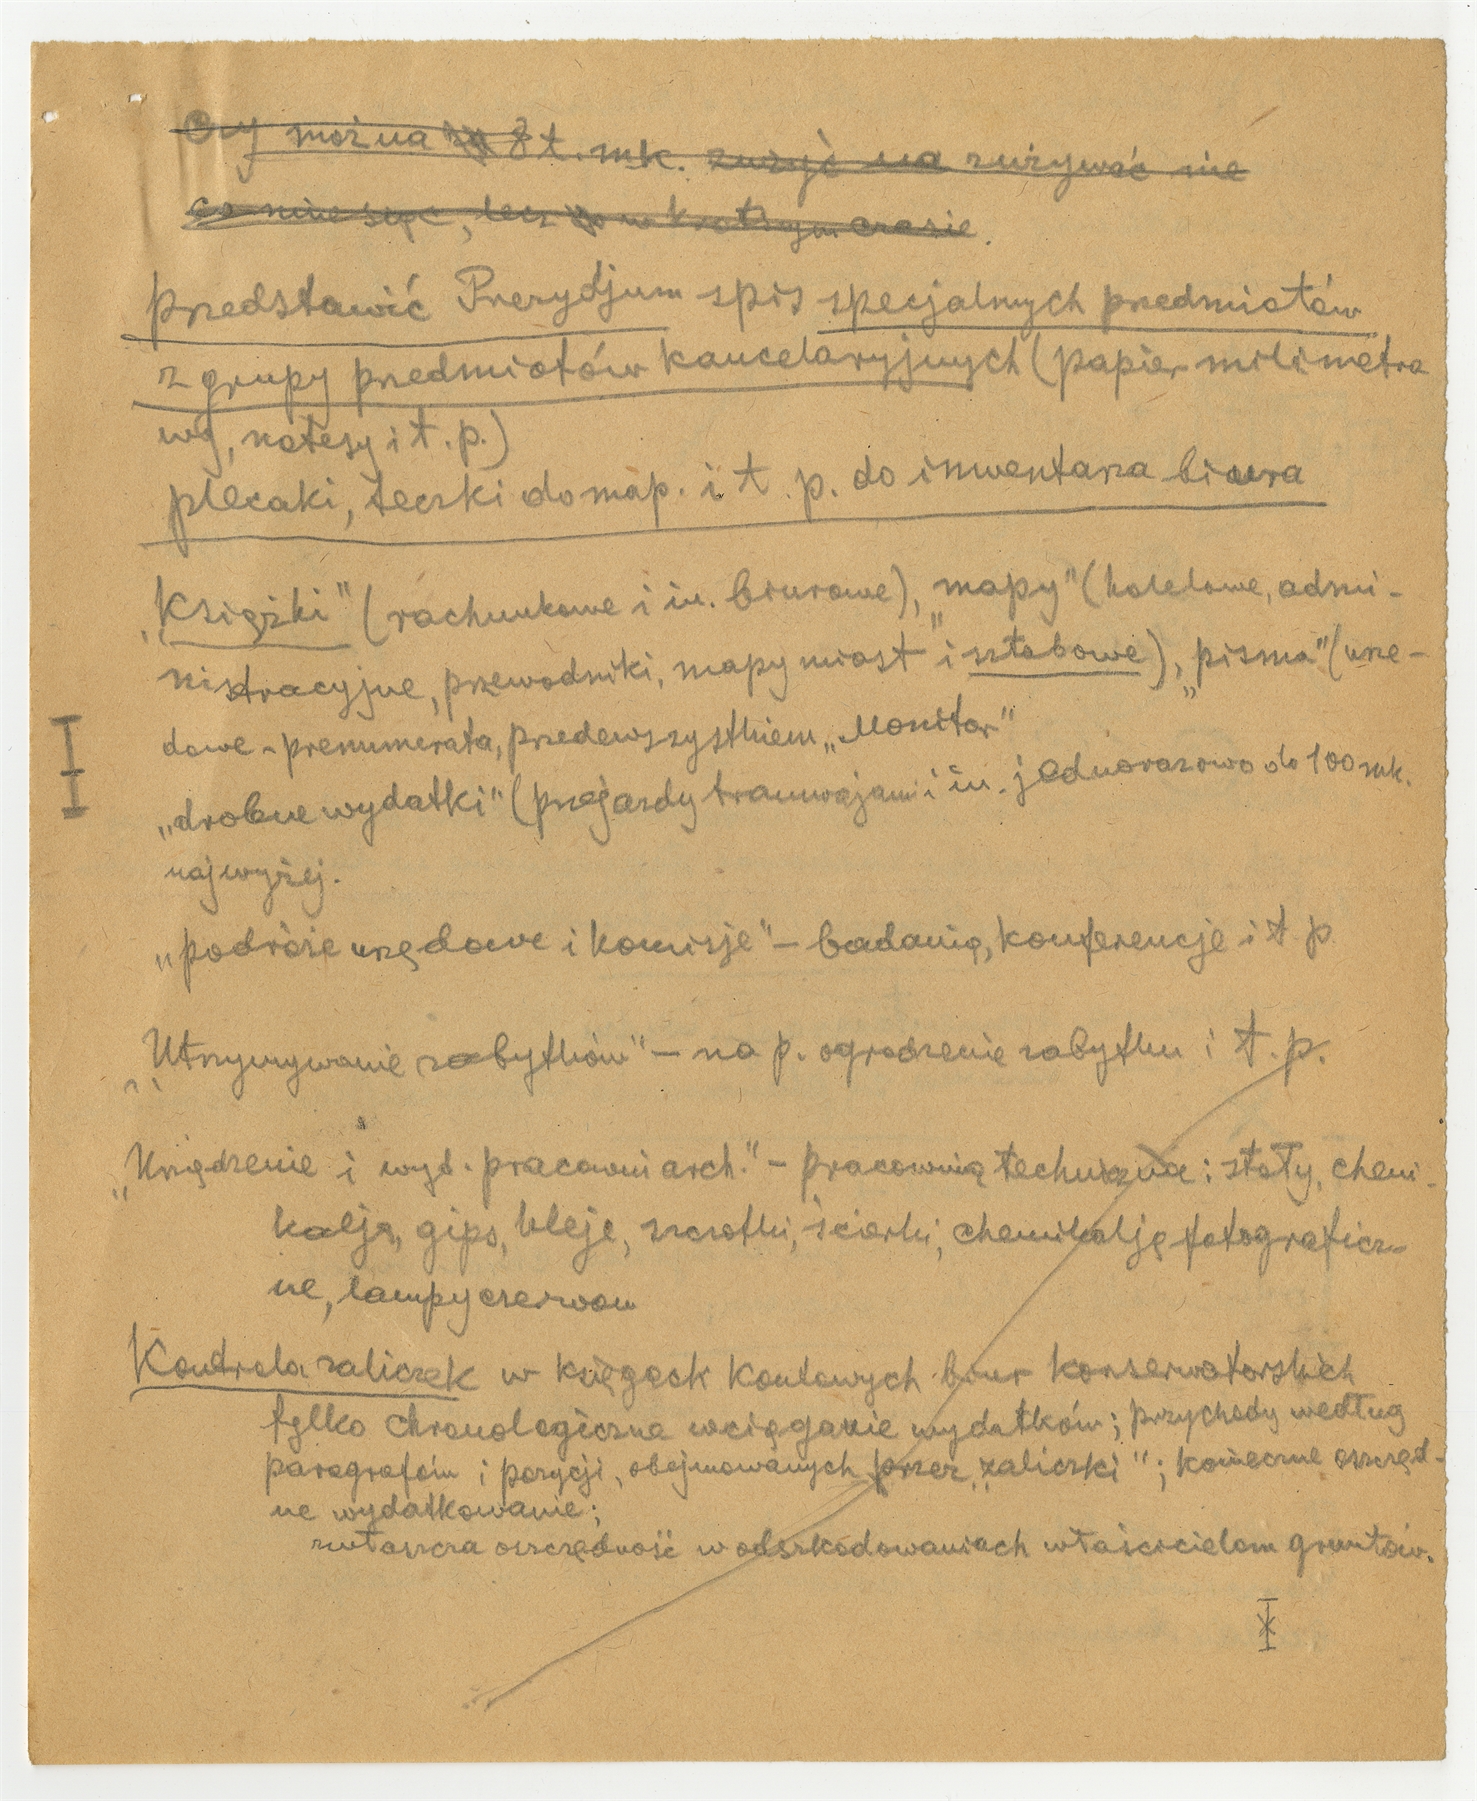 Czy można 8 t. mk. zużyć na zużywać nie
co miesiąc, lecz w krótszym czasie.
przedstawić Prezydjum spis specjalnych przedmiotów
z grupy przedmiotów kancelaryjnych (papier milimetro
wy, notesy i t. p.)
plecaki, teczki do map. i t. p. do inwentarza biura
„Książki" (rachunkowe i in. biurowe), „mapy" (kolejowe, admi-
nistracyjne, przewodniki, mapy miast i sztabowe), „pisma" (urzę-
dowe - prenumerata, przedewszystkiem „Monitor"
„drobne wydatki" (przejazdy tramwajami i in. jednorazowo do 100 mk.
najwyżej.
„podróże urzędowe i komisje" – badania, konferencje i t p
„Utrzymywanie zabytków" – na p. ogrodzenie zabytku i t. p.
„Urządzenie i wyd. pracowni arch." – pracownia techniczna: stoły, chemi-
kalja, gips, kleje, szczotki, ścierki, chemikalje fotograficz-
ne, lampy czerwon
Kontrola zaliczek w księgach kontowych biur konserwatorskich
tylko chronologiczne wciąganie wydatków; przychody według
paragrafów i pozycji, obejmowanych przez „zaliczki"; konieczne oszczęd-
ne wydatkowanie;
zwłaszcza oszczędność w odszkodowaniach właścicielom gruntów.